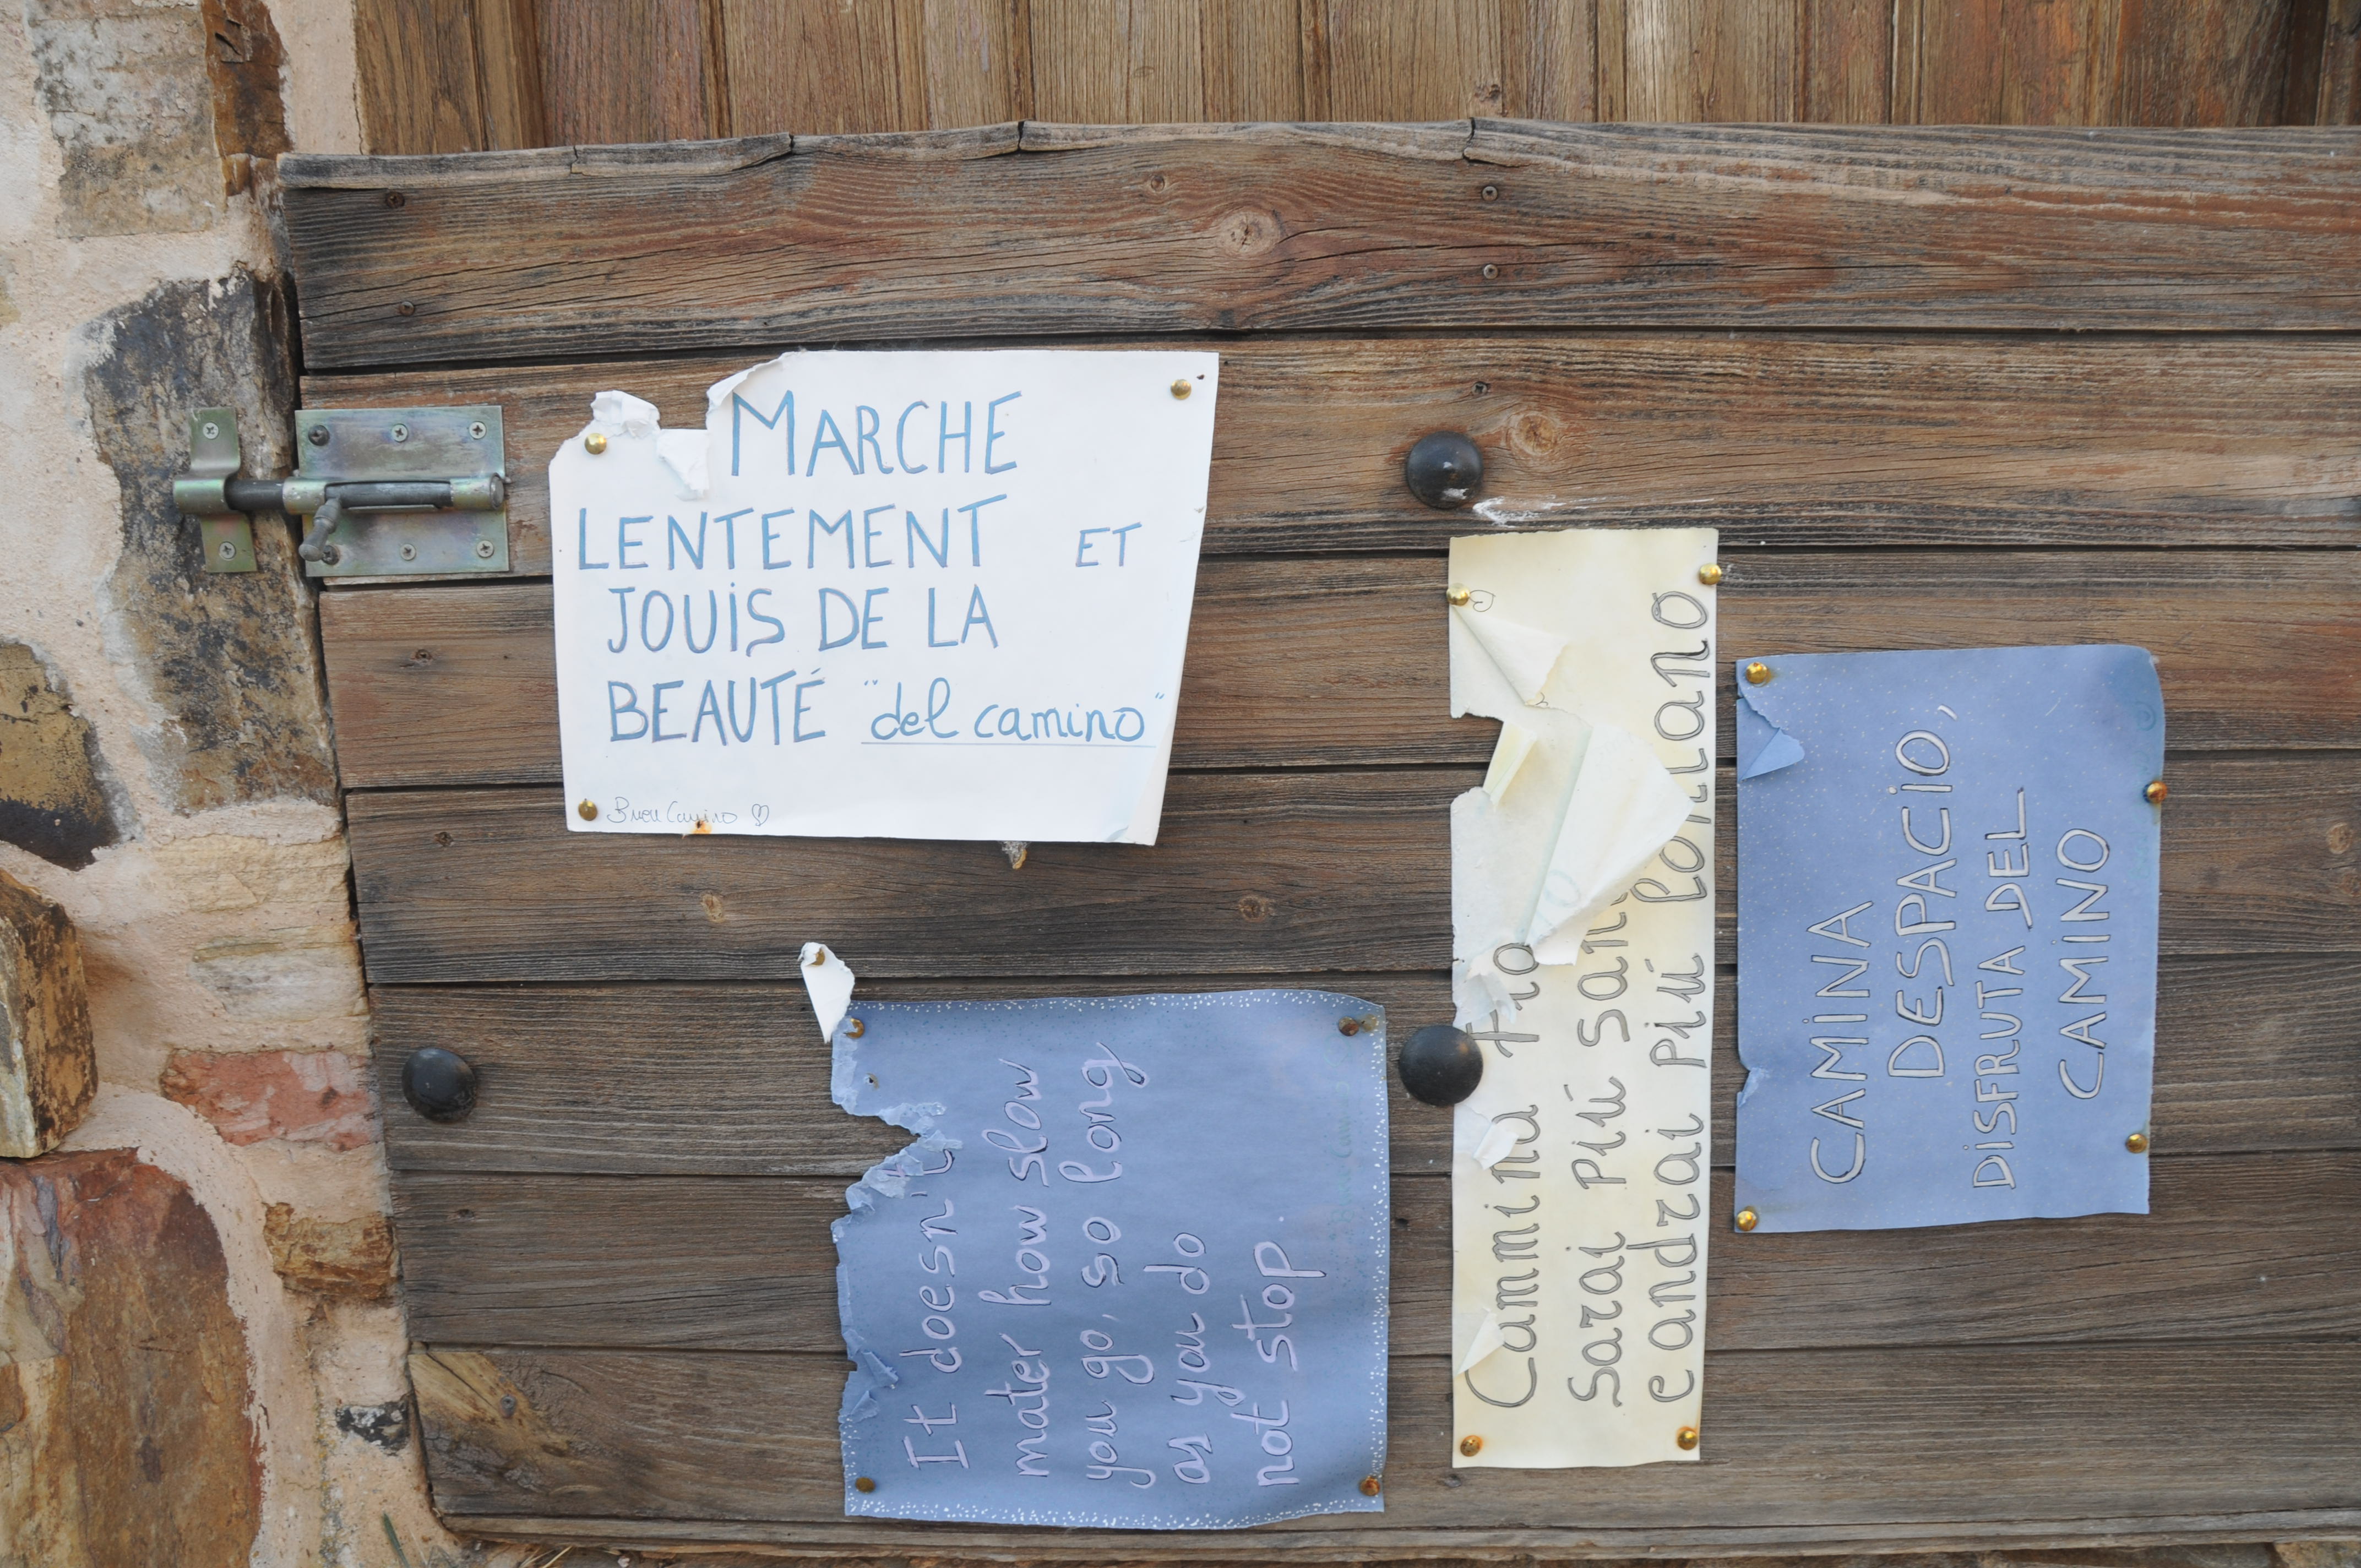 MARCHE
LENTEMENT ET
JOUIS DE LA
BEAUTÉ "del camino"
Buen Camino
It doesn't
mater how slow
you go, so long
as you do
not stop.
Cammina
Sarai più
e andrai più lontano
CAMINA
DESPACIO,
DISFRUTA DEL
CAMINO